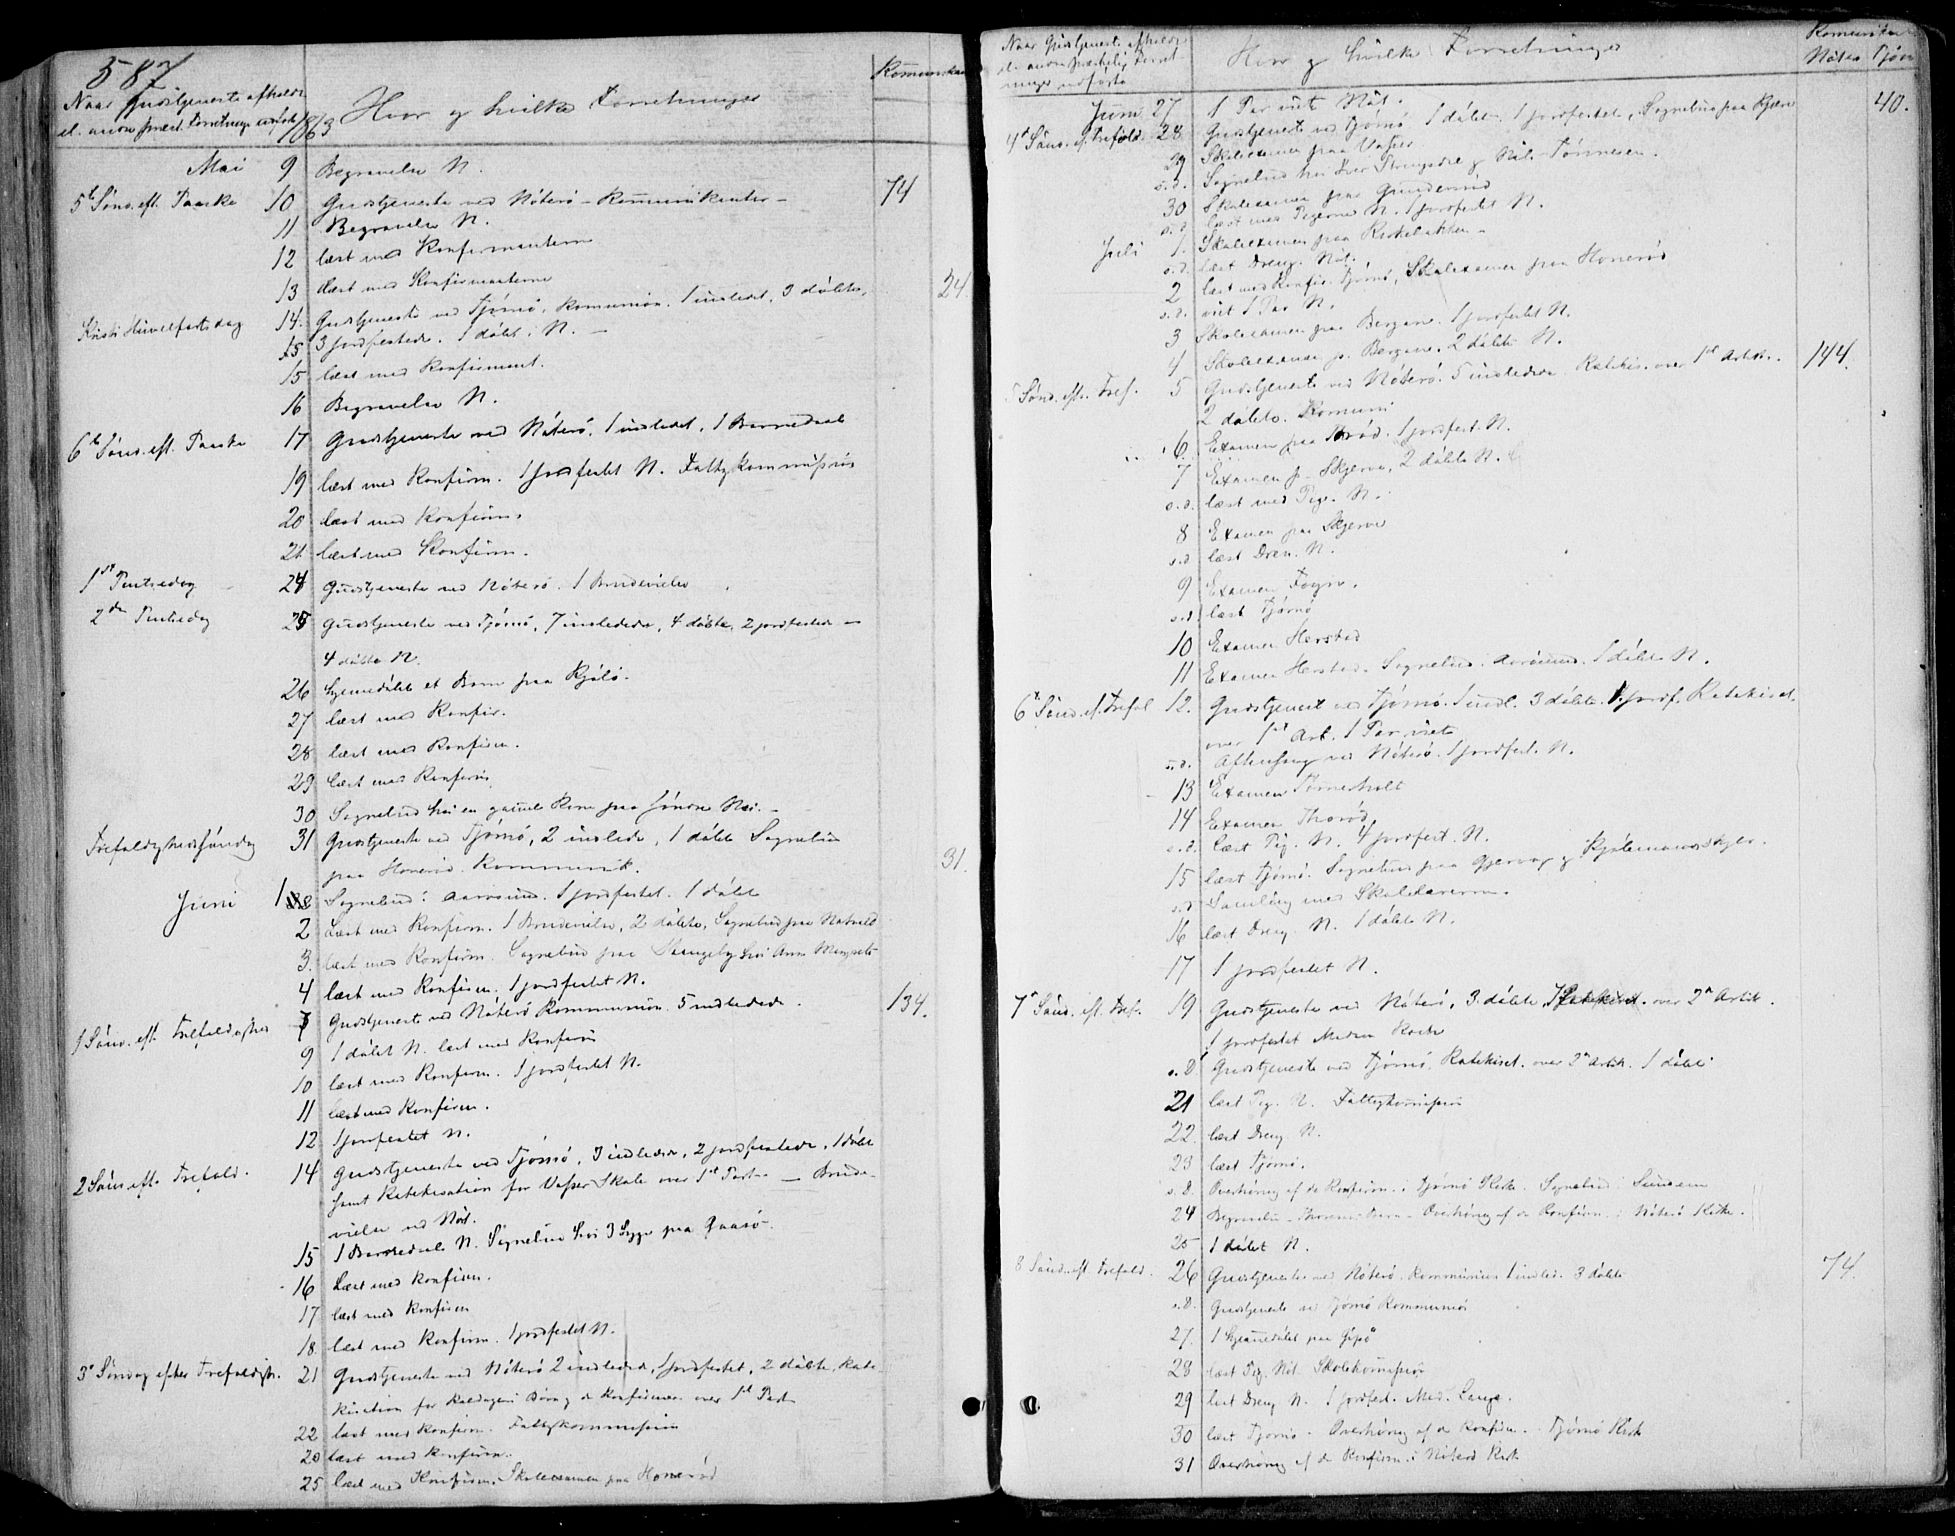 587.
Naar Gudstjeneste afholdt
el. andre præst. Forretninger udført 1863
Hvor og hvilke Forretninger
Mai 9 Begravelse N.
5te Sønd. eft. Paaske 10 Gudstjeneste ved Nøterø - Kommunikanter - 74
11 Begravelse N.
12 læst med Konfirmanterne
13 læst med Konfirmanterne
Kristi Himmelfartsdag 14. Gudstjeneste ved Tjømø, Kommunion. 1 indledet, 3 døbte, 24.
15 3 jordfestede. 1 døbt i N. -
15 læst med Konfirmant.
16 Begravelse N.
6te Sønd. eft. Paaske 17 Gudstjeneste ved Nøterø. 1 indledet, 1 Barnedaab
19 læst med Konfirm. 1 jordfestet N. Fattigkommission
20 læst med Konfirm.
21 læst med Konfirm.
1ste Pintsedag 24 Gudstjeneste ved Nøterø. 1 Brudevielse
2den Pintsedag 25 Gudstjeneste ved Tjømø, 7 indledede, 4 døbte, 2 jordfestede -
4 døbte N.
26 hjemmedøbt et Barn paa Kjølø.
27 læst med Konfir.
28 læst med Konfirm.
29 læst med Konfirm.
30 Sognebud hos en gammel Kone paa
Trefoldighedssøndag 31 Gudstjeneste ved Tjømø, 2 indlede, 1 døbt Sognebud
paa Honerød. Kommunik. 31.
Juni 1 Sognebud i Aarøsund. 1 jordfestet. 1 døbt
2 Læst med Konfirm. 1 Brudevielse, 2 døbte, Sognebud paa
3. læst med Konfirm. Sognebud paa hos Anne
4 læst med Konfirm. 1 jordfestet N.
1 Sønd. eft. Trefoldighed 7 Gudstjeneste ved Nøterø Kommunion. 5 indledede. 134.
9 1 døbt N. læst med Konfirm
10 læst med Konfirm. 1 jordfestet N.
11 læst med Konfirm.
12 1 jordfestet N.
2 Sønd. eft. Trefold. 14 Gudstjeneste ved Tjømø, 3 indledede, 2 jordfestede, 1 døbt
samt Katekisation for Vasser Skole over 1ste Part - Brude-
vielse ved Nøt.
15 1 Barnedaab N. Sognebud hos 3 Syge paa Gaasø.
16 Læst med Konfirm.
17 læst med Konfirm
18 læst med Konfirm. 1 jordfestet N.
3die Søndag efter Trefoldigh. 21 Gudstjeneste ved Nøterø 2 indledede, 1 jordfestet, 2 døbte, Kate
kisation for Børn og de Konfirmer. over 1ste Part
22 læst med Konfirm. Fattigkommission
23 læst med Konfirm.
25 læst med Konfirm. Skoleexamen paa Honerød
Naar Gudstjeneste afholdt
el. andre præstelig Forret-
ninger udførte
Hvor og hvilke Forretninger
Nøterø Tjøm
Juni 27 1 Par viet Nøt.
4de Sønd. ef. Trefold. 28 Gudstjeneste ved Tjømø 1 døbt. 1 jordfestet, Sognebud paa 40.
29 Skoleexamen paa Vasser
s.d. Sognebud hos
30 Skoleexamen paa
s.d. læst med Pigerne N. 1 jordfestet N.
Juli 1. Skoleexamen paa
s.d. læst Dreng. Nøt.
2 læst med Konfir. Tjømø, Skoleexamen paa Honerød
s.d. viet 1 Par N.
3 Skoleexamen paa Bergan. 1 jordfestet N.
4 Skoleexamen p. Bergan. 2 døbte N.
5 Sønd. eft. Tref. 5 Gudstjeneste ved Nøterø. 5 indledede. Katekis. over 1ste Artik. 144.
2 døbte. Kommuni
6. Examen paa 1 jordfest. N.
7 Examen p. Skjerve, 2 døbte N.
s.d. læst med Pige. N.
8 Examen paa Skjerve
s.d læst Dren. N.
9 Examen
s.d. læst Tjømø
10 Examen Herstad
11 Examen Herstad. Sognebud Aarøsund. 1 døbt N.
6te Sønd. ef. Trefol 12. Gudstjenest ved Tjømø. 1 indl. 3 døbte. 1 jordf. Katekiset.
over 1ste Art. 1 Par viet
s.d. Aftensang ved Nøterø. 1 jordfest. N.
13 Examen
14 Examen Thorød
s.d. Læst Pig. N. 4 jordfest. N.
15 læst Tjømø. Sognebud paa
s.d Samling med Skolelærerne.
16 læst Dreng. N. 1 døbt N.
17 1 jordfestet N.
7de Sønd. eft. Tref. 19 Gudstjeneste ved Nøterø, 3 døbte Katekiset. over 2den Artik.
1 jordfestet
s.d. Gudstjeneste ved Tjømø, Katekiset. over 2den Artik. 1 døbt
21 læst Pig. N. Fattigkommission
22. læst Dreng N.
23 læst Tjømø.
s.d. Overhøring af de Konfirm. i Tjømø Kirke. Sognebud
24 Begravelse Overhøring af de Konfirm. i Nøterø Kirke.
25 1 døbt N.
8 Sønd. eft Trefold. 26 Gudstjeneste ved Nøterø. Kommunion 1 indled. 3 døbte 74
s.d. Gudstjeneste ved Tjømø Kommunion
27. 1 hjemmedøbt paa Gipø
28 læst Pig. Nøt. Skolekommission
29 læst Dreng N. 1 jordfest.
30 læst Tjømø. Overhøring af de Konfirm. Tjømø Kirk
31 Overhøring af de Konfirm. i Nøterø Kirk